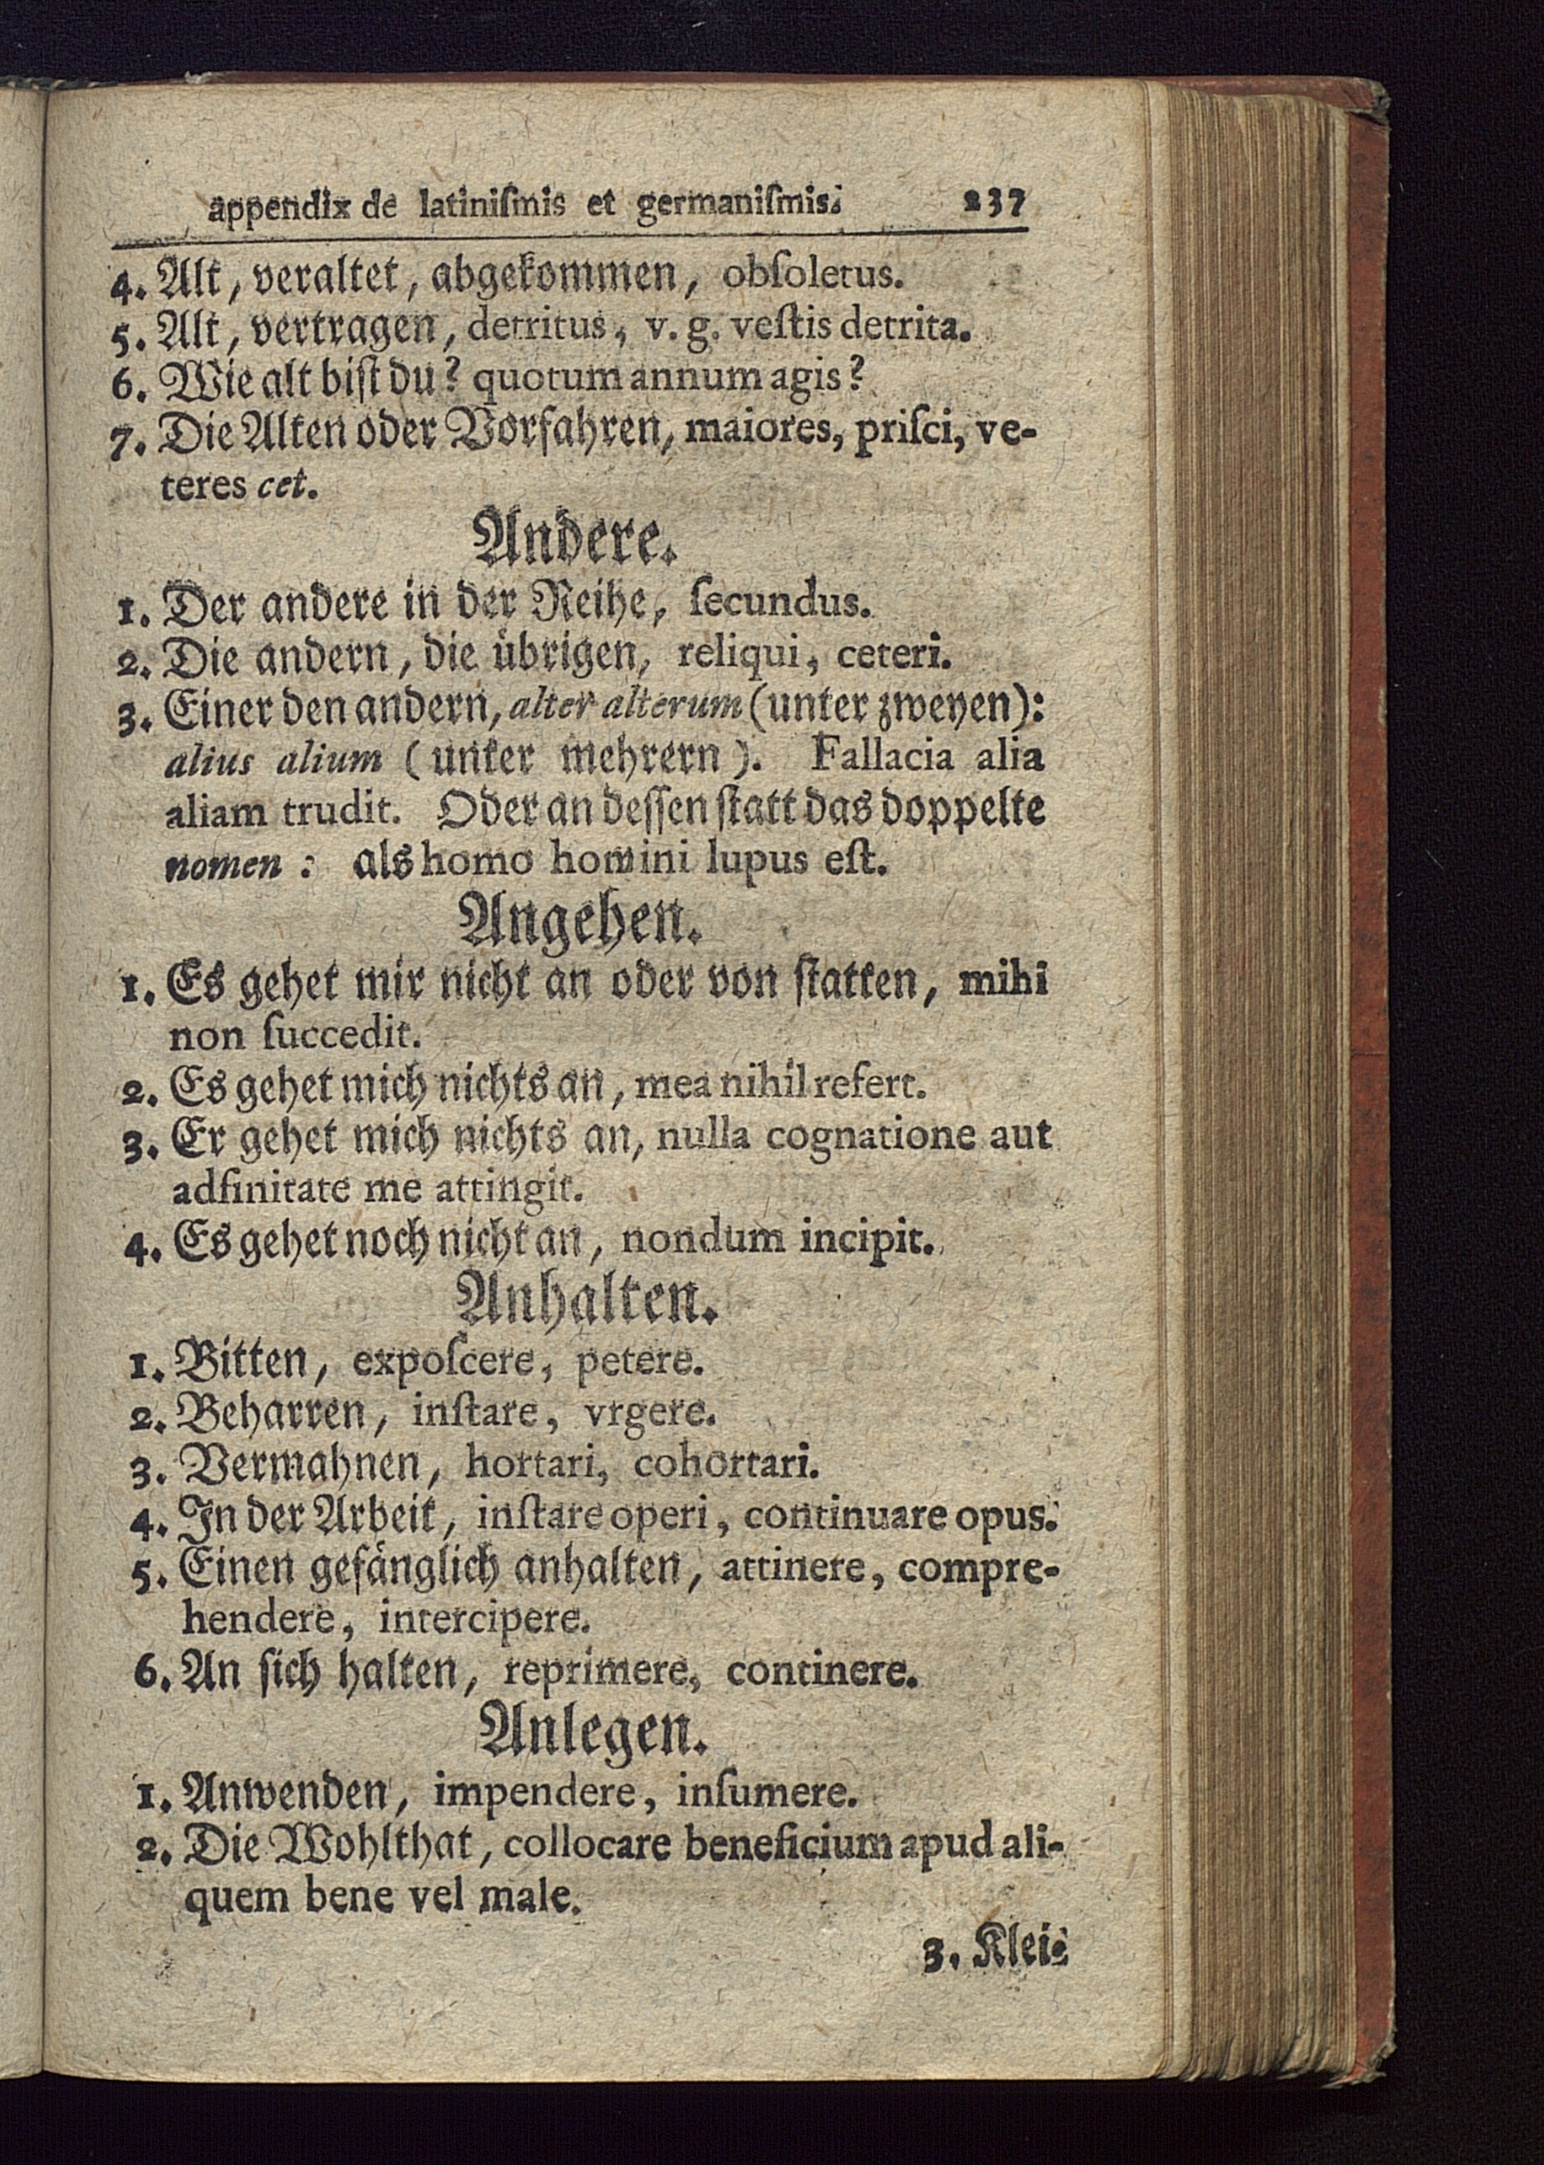 appendix de latiniſmis et germaniſmis. 237
4. Alt, veraltet, abgekommen, obſoletus.
5. Alt, vertragen, detritus, v. g. veſtis detrita.
6. Wie alt biſt du? quotum annum agis?
7. Die Alten oder Vorfahren, maiores, priſci, ve-
teres cet.
Andere.
1. Der andere in der Reihe, ſecundus.
2. Die andern, die übrigen, reliqui, ceteri.
3. Einer den andern, alter alterum (unter zweyen):
alius alium (unter mehrern). Fallacia alia
aliam trudit. Oder an deſſen ſtatt das doppelte
nomen: als homo homini lupus eſt.
Angehen.
1. Es gehet mir nicht an oder von ſtatten, mihi
non ſuccedit.
2. Es gehet mich nichts an, mea nihil refert.
3. Er gehet mich nichts an, nulla cognatione aut
adfinitate me attingit.
4. Es gehet noch nicht an, nondum incipit.
Anhalten.
1. Bitten, expoſcere, petere.
2. Beharren, inſtare, vrgere.
3. Vermahnen, hortari, cohortari.
4. In der Arbeit, inſtare operi, continuare opus.
5. Einen gefänglich anhalten, attinere, compre-
hendere, intercipere.
6. An ſich halten, reprimere, continere.
Anlegen.
1. Anwenden, impendere, inſumere.
2. Die Wohlthat, collocare beneficium apud ali-
quem bene vel male.
3. Klei-